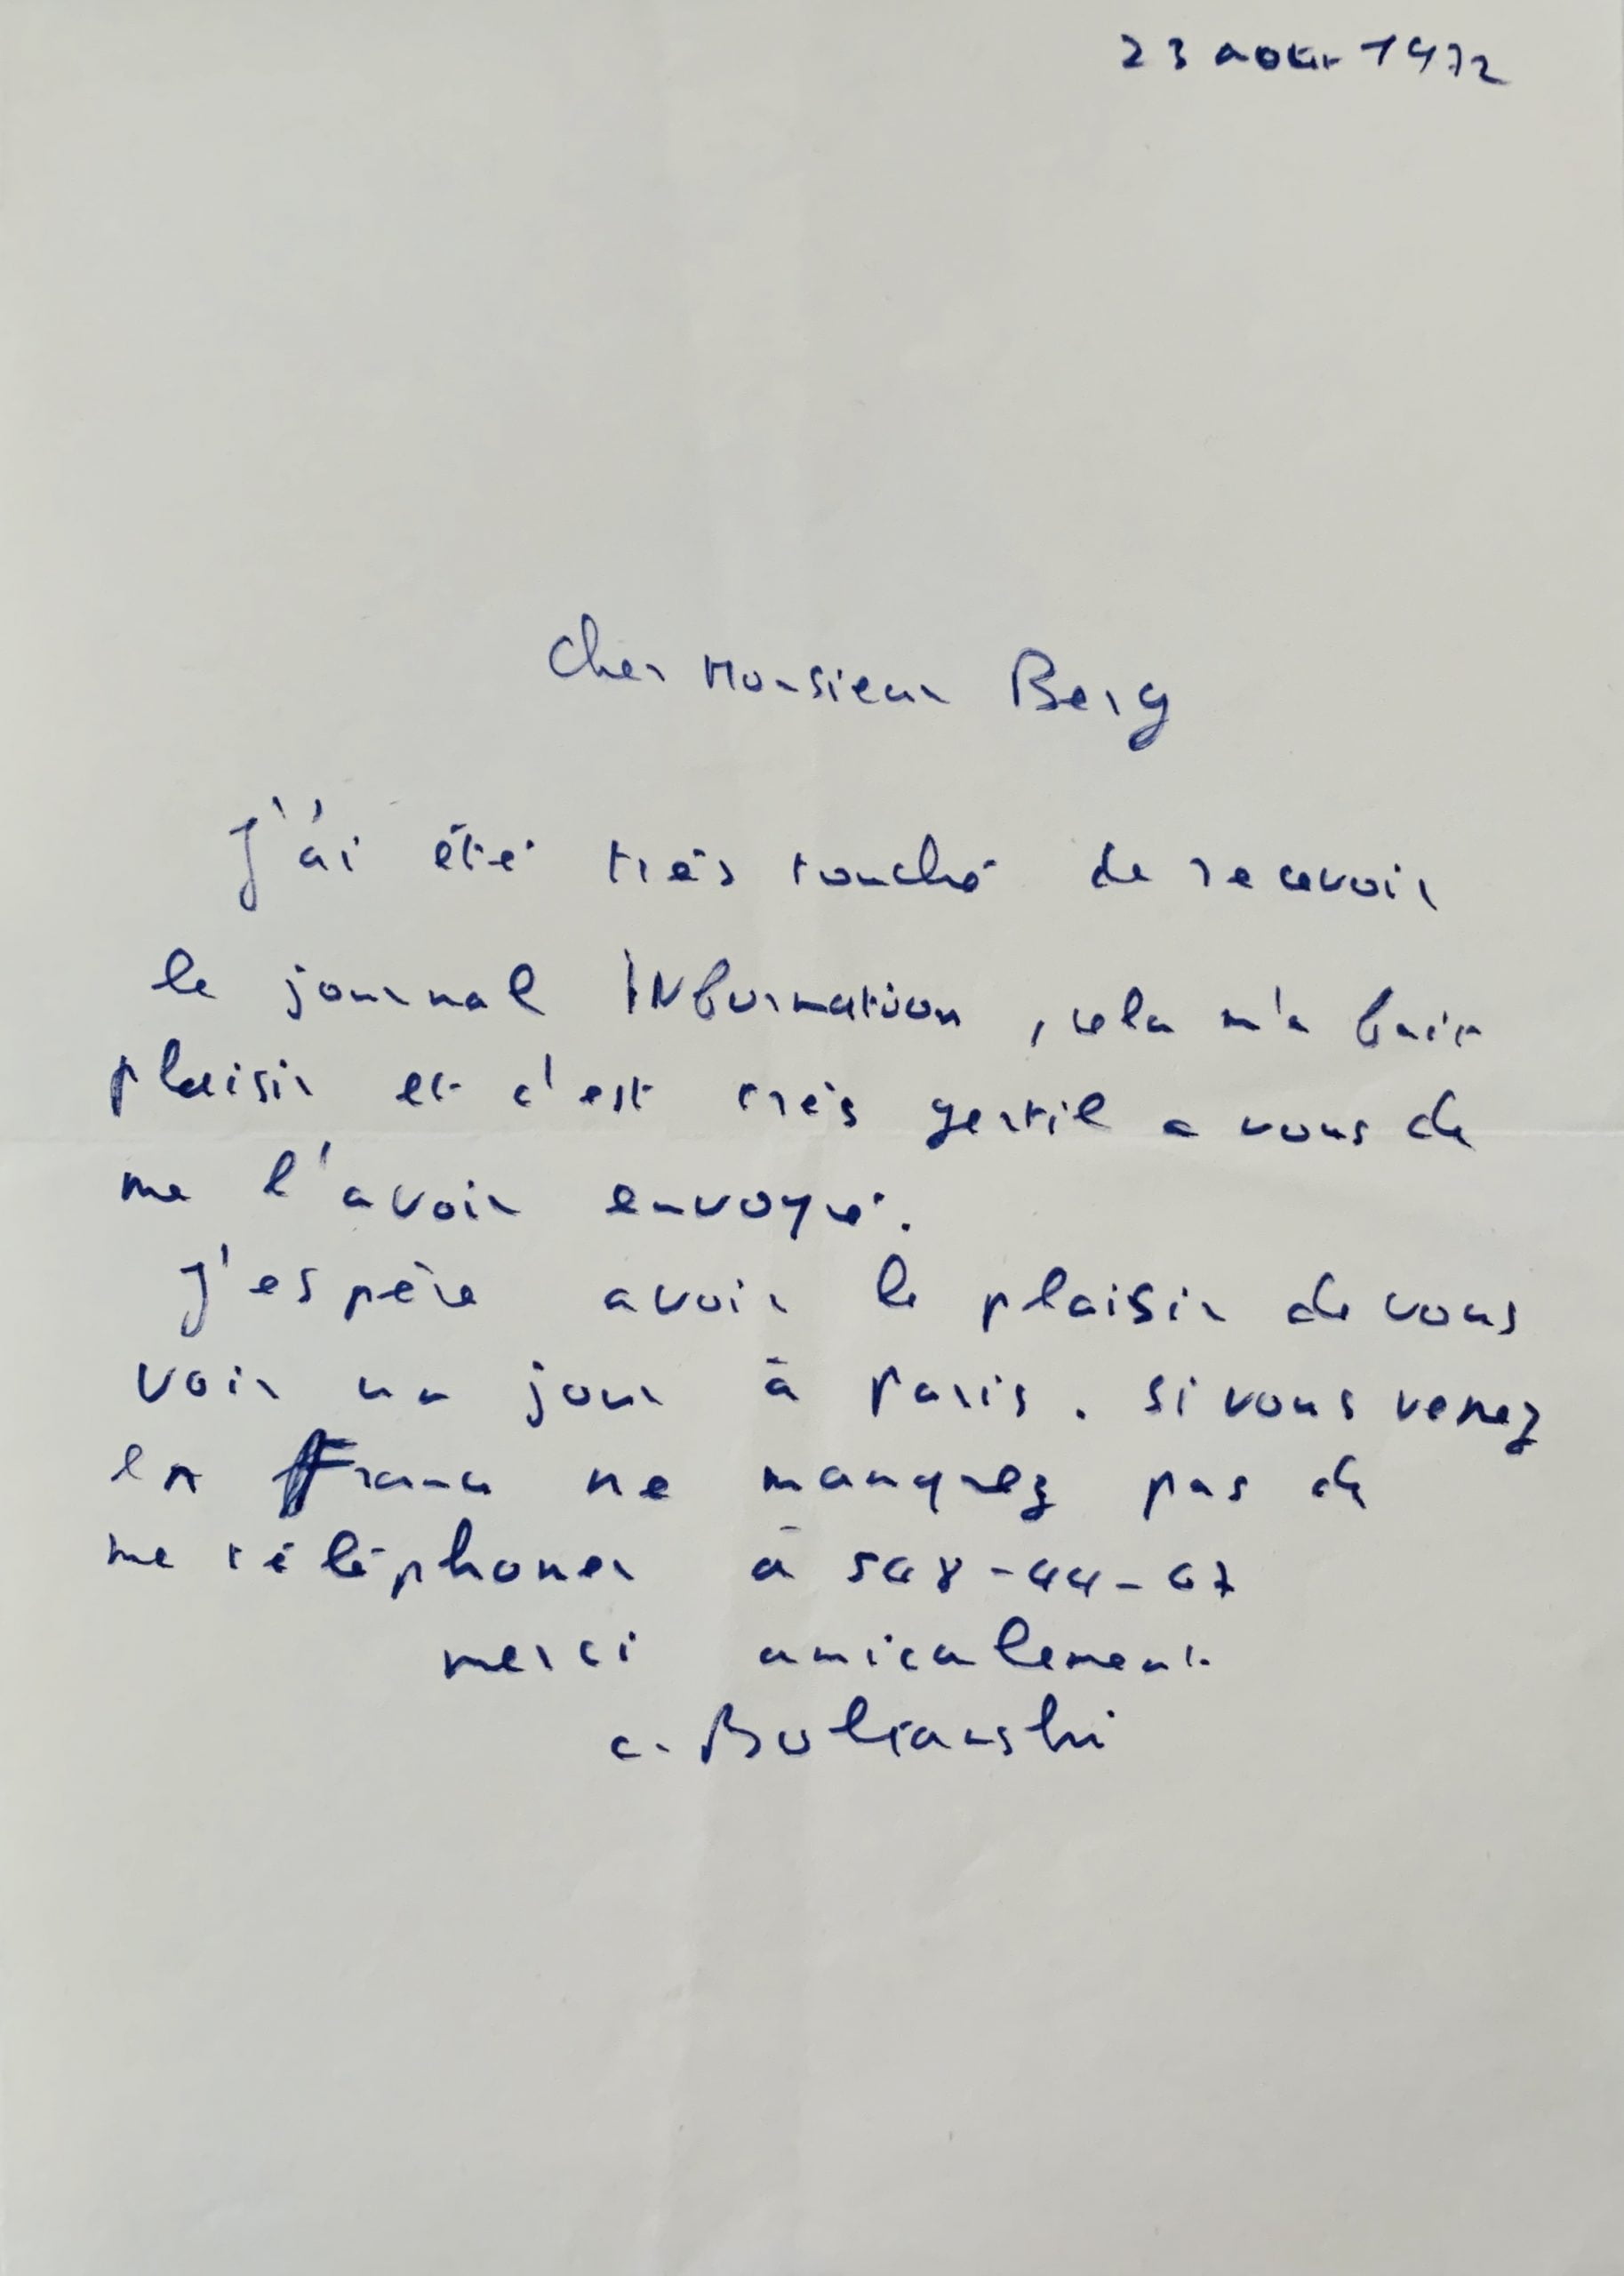 23 août 1972
Cher Monsieur Berg
J'ai été très touché de recevoir
le journal INformation, cela m'a fait
plaisir et c'est très gentil a vous de
me l'avoir envoyé.
J'espère avoir le plaisir de vous
voir un jour à Paris. Si vous venez
en France ne manquez pas de
me téléphoner à
merci amicalement
c. Boltanski